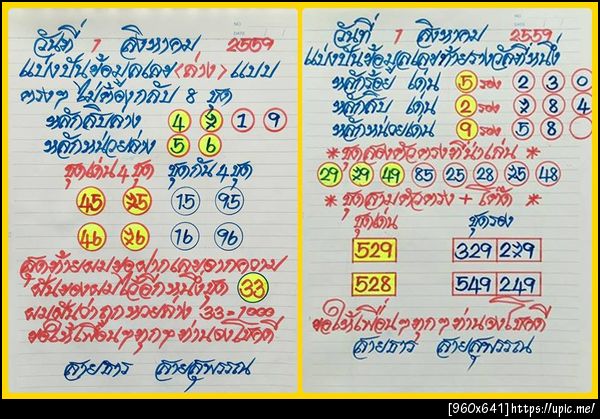 วันที่ 1 สิงหาคม 2559
แบ่งปันข้อมูลเลข <ล่าง> แบบ
ตรงๆ ไม่ต้องกลับ 8 ชุด
หลักสิบล่าง 4 7 1 9
หลักหน่วยล่าง 5 6
ชุดเด่น 4 ชุด ชุดกัน 4 ชุด
45 75 15 95
46 76 16 96
สุดท้ายผมขอฝากเลขจากความ
ฝันของผมไว้อีกหนึ่งชุด 33
ผมฝันว่าถูกหวยล่าง 33=1000
ขอให้เพื่อนๆทุกๆท่านจงโชคดี
สายธาร สายสุพรรณ
วันที่ 1 สิงหาคม 2559
แบ่งปันข้อมูลเลขท้ายรางวัลที่หนึ่ง
หลักร้อย เด่น 5 รอง 2 3 0
หลักสิบ เด่น 2 รอง 7 8 4
หลักหน่วยเด่น 9 รอง 5 8
* ชุดสองตัวตรงที่น่าเล่น *
29 79 49 85 25 28 75 48
* ชุดสามตัวตรง + โต๊ด *
ชุดเด่น ชุดรอง
529 329 279
528 549 249
ขอให้เพื่อนๆทุกๆท่านจงโชคดี
สายธาร สายสุพรรณ
[960x641] https://upic.me/